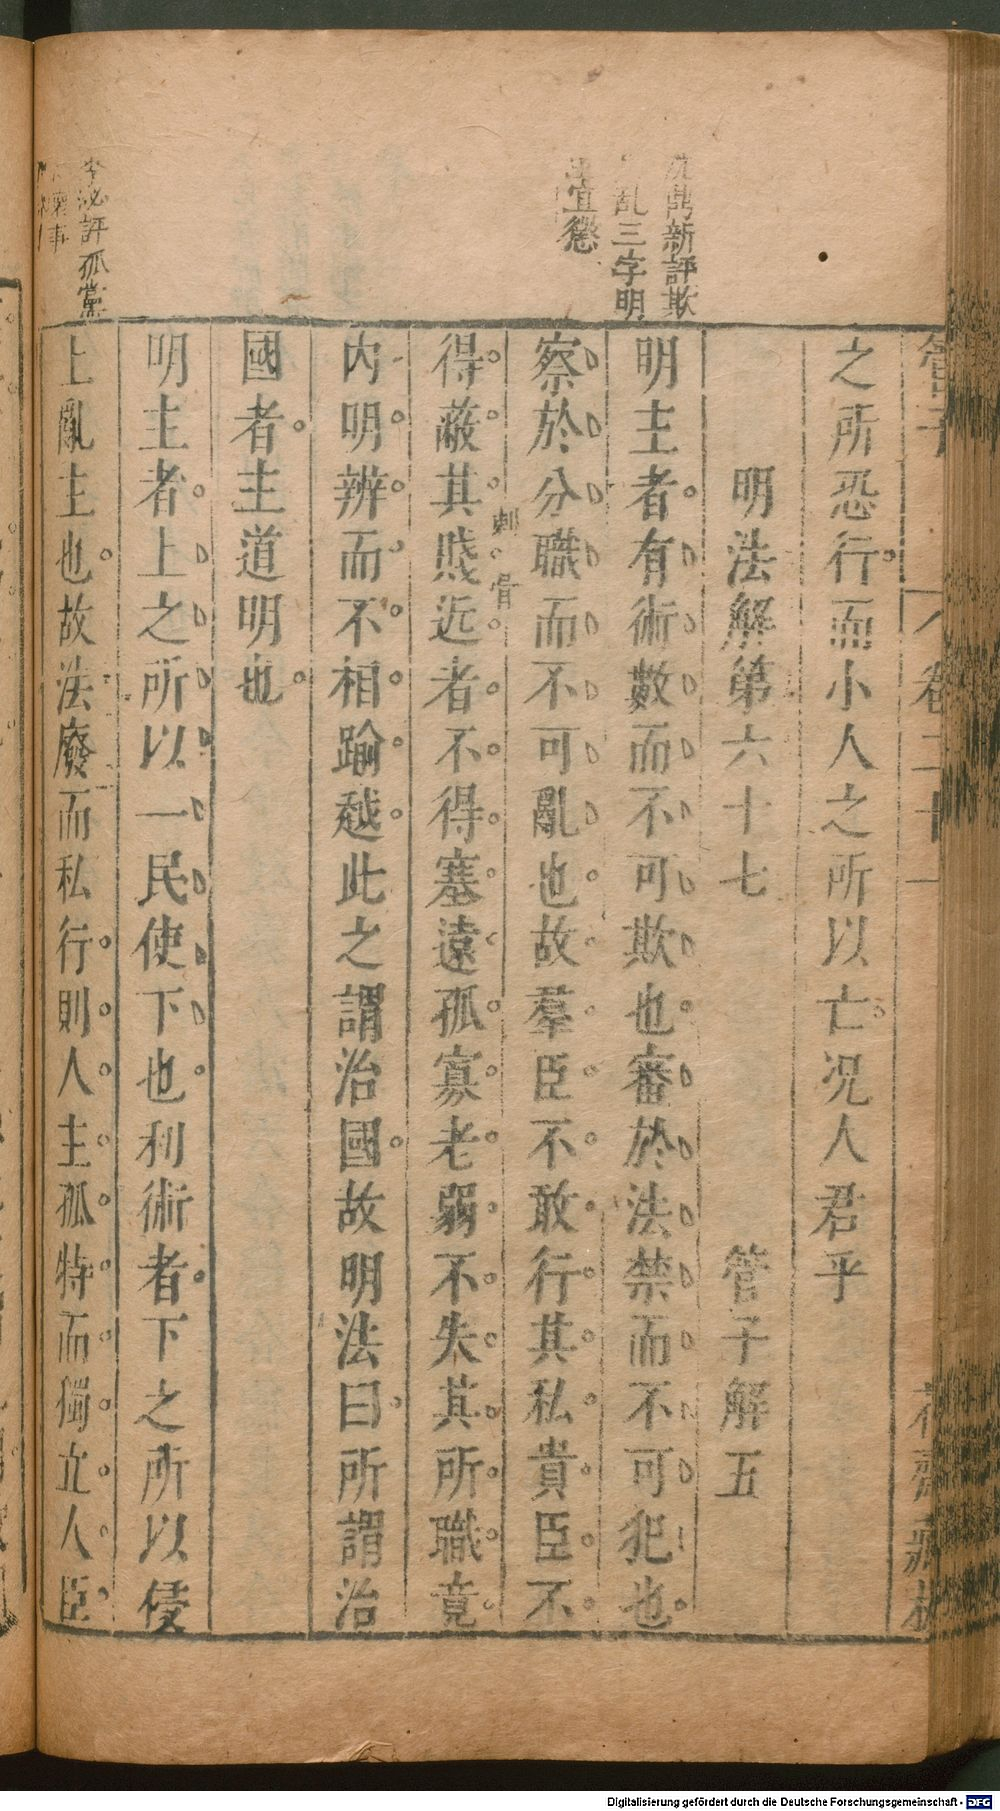 管子
卷二十一
花齋藏板
之所恐行而小人之所以亡况人君乎
明法解第六十七 管子解五
明主者有術數而不可欺也審於法禁而不可犯也
察於分職而不可亂也故羣臣不敢行其私貴臣不
得蔽其賤近者不得塞遠孤寡老弱不失其所職竟
内明辨而不相踰越此之謂治國故明法曰所謂治
國者主道明也
明主者上之所以一民使下也利術者下之所以侵
上亂主也故法廢而私行則人主孤特而獨立人臣
鼎新評欺
亂三字明
宜懲
刺骨
李泌評孤黨
Digitalisierung gefördert durch die Deutsche Forschungsgemeinschaft - DFG